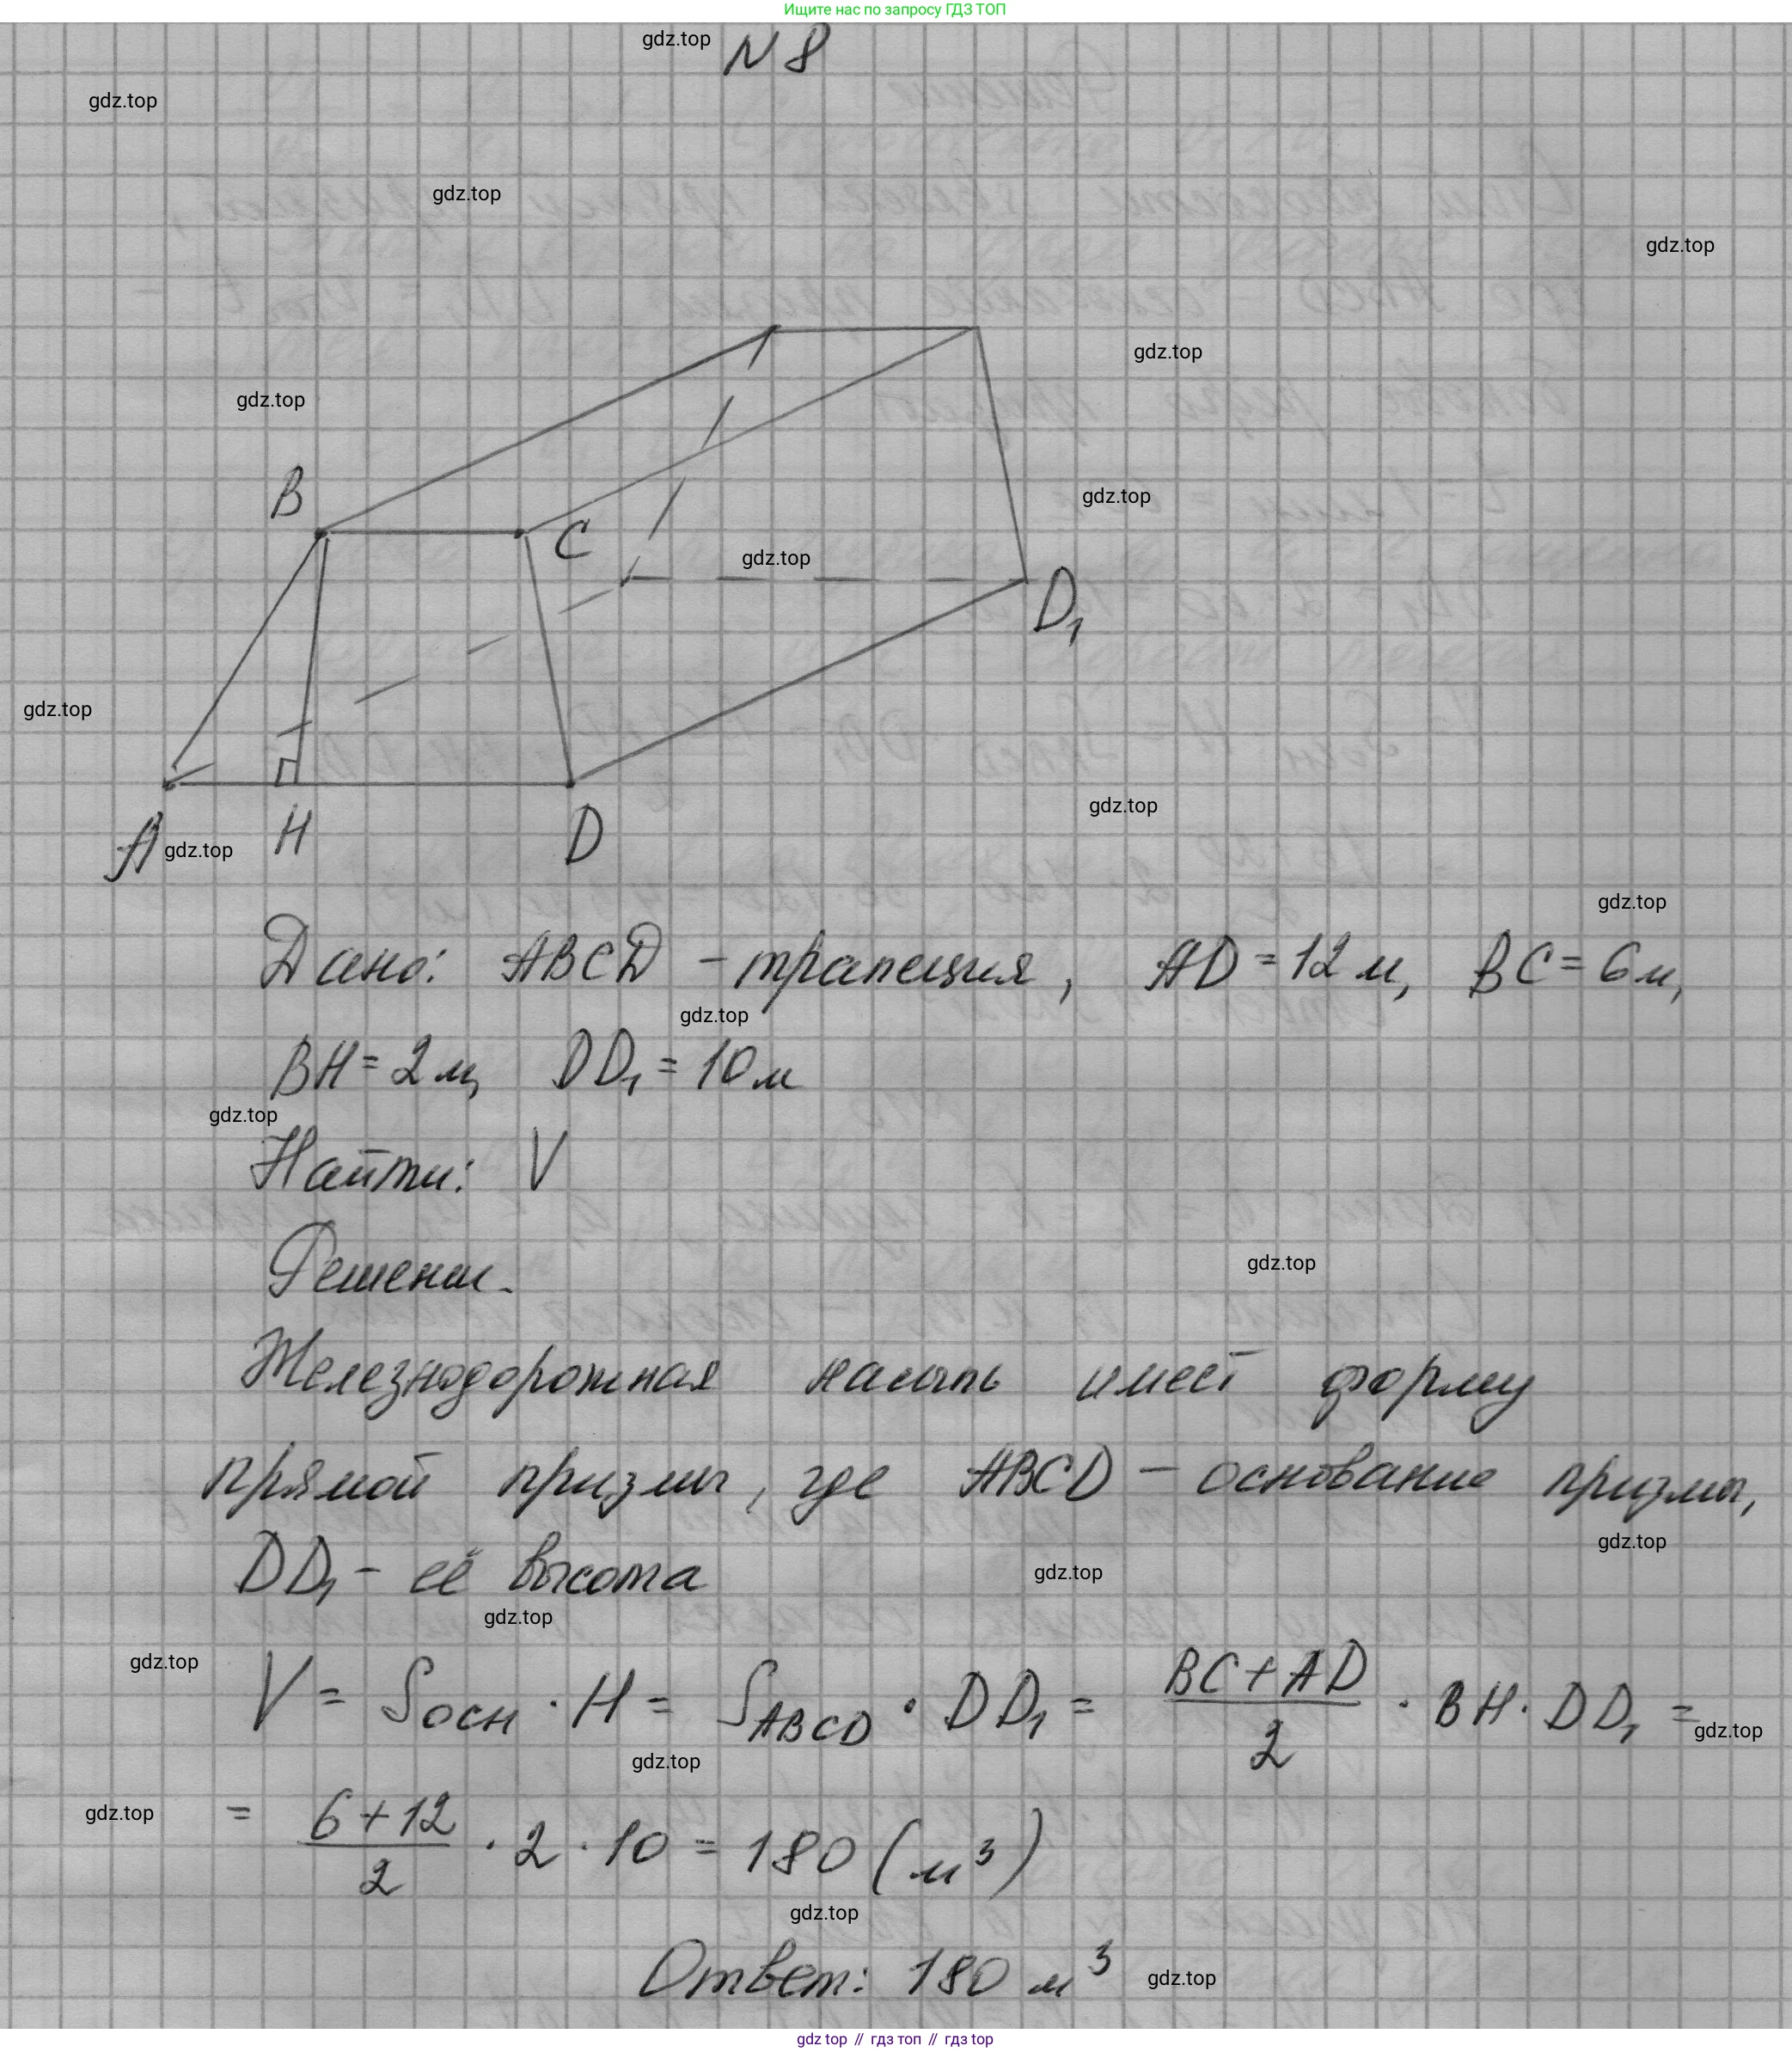 Ищите нас по запросу ГДЗ ТОП
gdz.top
N 8
gdz.top
gdz.top
gdz.top
gdz.top
gdz.top
B
C
gdz.top
gdz.top
D₁
gdz.top
A
gdz.top
H
D
gdz.top
gdz.top
Дано: ABCD - трапеция, AD = 12 м, BC = 6 м,
gdz.top
BH = 2 м, DD₁ = 10 м
gdz.top
Найти: V
gdz.top
Решение.
Железнодорожная насыпь имеет форму
прямой призмы, где ABCD - основание призмы,
gdz.top
DD₁ - её высота
gdz.top
gdz.top
gdz.top
V = Sосн · H = S_ABCD · DD₁ = (BC + AD)/2 · BH · DD₁ =
gdz.top
gdz.top
gdz.top
= (6 + 12)/2 · 2 · 10 = 180 (м³)
gdz.top
Ответ: 180 м³
gdz.top
gdz top // гдз топ // гдз top